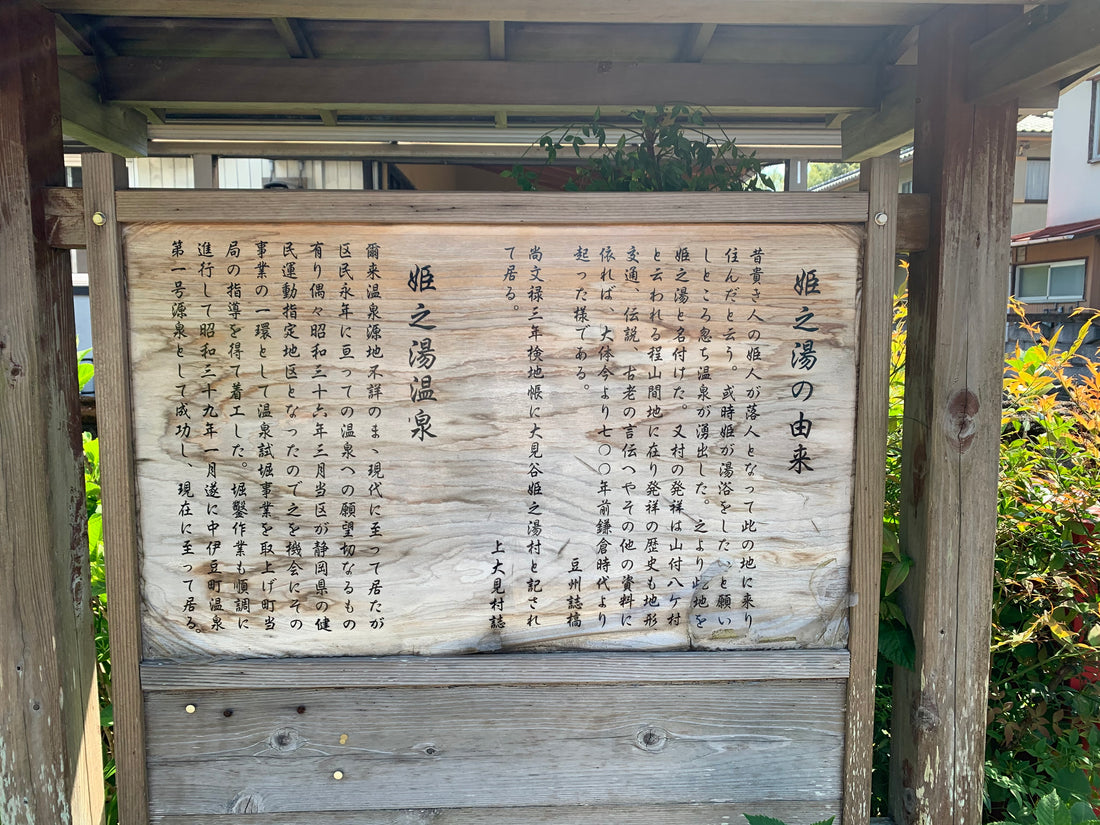 姫之湯の由来
昔貴き人の姫人が落人となって此の地に来り
住んだと云う。或時姫が湯浴をしたいと願い
しところ忽ち温泉が湧出した。之より此地を
姫之湯と名付けた。又村の発祥は山付八ケ村
と云われる程山間地に在り発祥の歴史も地形
交通、伝説、古老の言伝へやその他の資料に
依れば、大体今より七〇〇年前鎌倉時代より
起った様である。 豆州誌橋
尚文禄三年検地帳に大見谷姫之湯村と記され
て居る。 上大見村誌
姫之湯温泉
爾来温泉源地不詳のまゝ現代に至って居たが
区民永年に亘っての温泉への願望切なるもの
有り偶々昭和三十六年三月当区が静岡県の健
民運動指定地区となったので之を機会にその
事業の一環として温泉試堀事業を取上げ町当
局の指導を得て着工した。堀鑿作業も順調に
進行して昭和三十九年一月遂に中伊豆町温泉
第一号源泉として成功し、現在に至って居る。